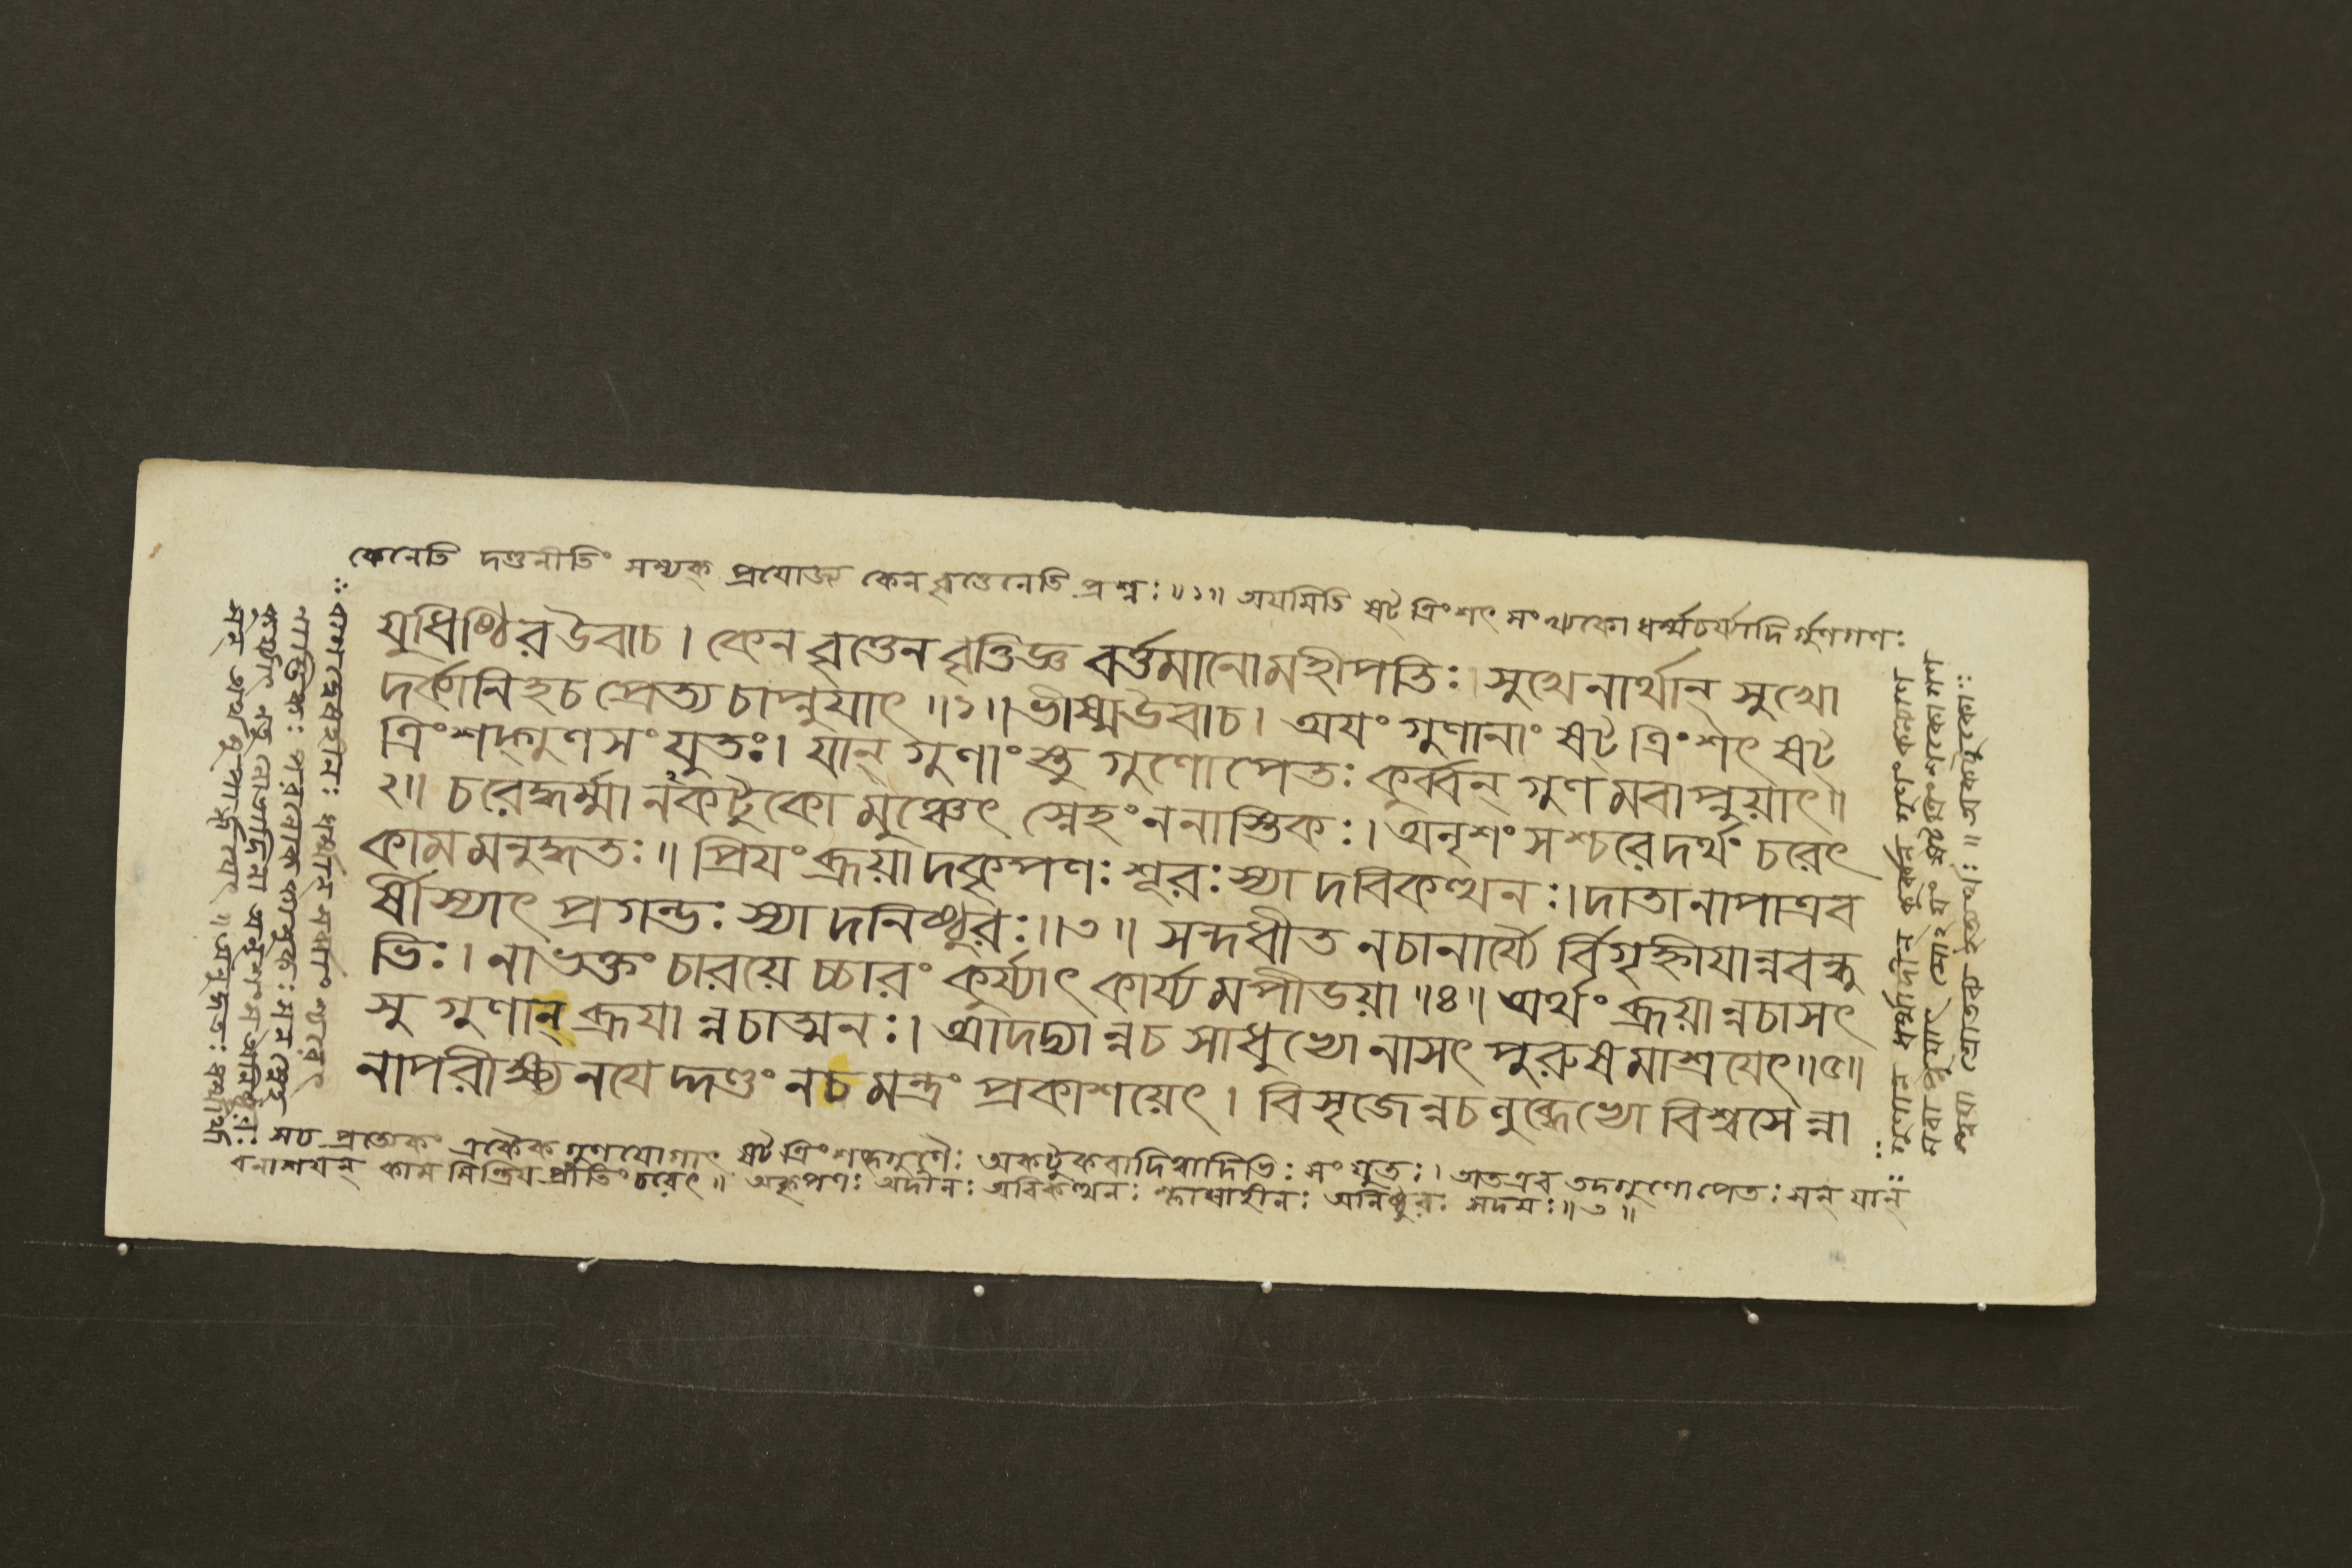 কেনেতি দণ্ডনীতিং সম্যক্ প্রযোজ্য কেন বৃত্তেনেতি প্রশ্নঃ ॥১॥ অযমিতি ষট্ ত্রিংশৎ সংখ্যকো ধর্ম্মচর্য্যাদি র্গুণগণঃ
যুধিষ্ঠির উবাচ । কেন বৃত্তেন বৃত্তিজ্ঞ বর্ত্তমানো মহীপতিঃ । সুখেনার্থান্ সুখো
দর্কানিহ চ প্রেত্য চাপ্নুযাৎ ॥১॥ ভীষ্মউবাচ । অযং গুণানাং ষট্ ত্রিংশৎ ষট্
ত্রিংশদ্গুণসংযুতঃ । যান্ গুণাংস্তু গুণোপেতঃ কুর্ব্বন্ গুণমবাপ্নুয়াৎ ॥
২॥ চরেদ্ধর্ম্মানকটুকো মুঞ্চেৎ স্নেহং ননাস্তিকঃ । অনৃশংসশ্চরেদর্থং চরেৎ
কামমনুদ্ধতঃ ॥ প্রিযং ব্রূয়াদকৃপণঃ শূরঃ স্যাদবিকত্থনঃ । দাতা নাপাত্রব
র্ষী স্যাৎ প্রগল্ভঃ স্যাদনিষ্ঠুরঃ ॥৩॥ সন্দধীত নচানার্য্যৈ র্বিগৃহ্নীযান্নবন্ধু
ভিঃ । নাভক্তং চারয়েচ্চারং কুর্য্যাৎ কার্য্যমপীডয়া ॥৪॥ অর্থং ব্রূয়ান্নচাসৎ
সু গুণান্ ব্রূযান্নচাত্মনঃ । আদদ্যান্নচ সাধুভ্যো নাসৎ পুরুষমাশ্রযেৎ ॥৫॥
নাপরীক্ষ্য নযেদ্দণ্ডং নচ মন্ত্রং প্রকাশয়েৎ । বিসৃজেন্নচ লুব্ধেভ্যো বিশ্বসেন্না
সচ প্রত্যেকং একৈক গুণযোগাৎ ষট্ ত্রিংশদ্গুণৈঃ অকটুকবাদিত্বাদিভিঃ সংযুতঃ । অতএব তদ্গুণোপেতঃ সন্ যান্
বনাশযন্ কামমিন্দ্রিয প্রীতিং চরেৎ ॥ অকৃপণঃ অদীনঃ অবিকত্থনঃ শ্লাঘাহীনঃ অনিষ্ঠুরঃ সদযঃ ॥৩॥
গুণান্ ধর্ম্মাদীন্ কুর্ব্বন্ গুণং কল্যাণ
মবাপ্নুয়াৎ
রাগদ্বেষহীনঃ ধর্ম্মান্ চরেৎ
নাস্তিকঃ পরলোক সন্ স্নেহং
সন্ অর্থমুপার্জ্জযেৎ ॥ অনুদ্ধতঃ ধর্ম্মার্থা